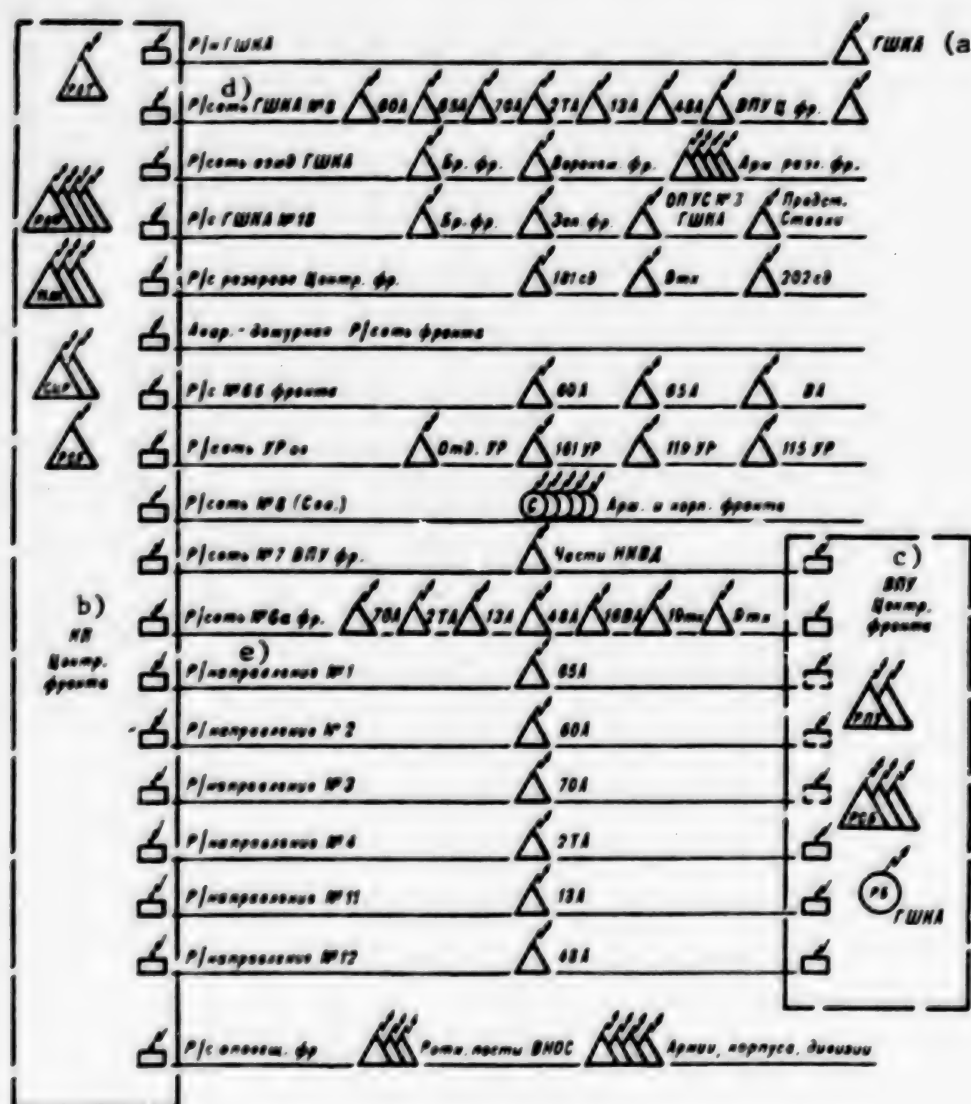 Р/н ГШКА ГШКА (a
РАТ
d)
Р/сеть ГШКА №8 60А 65А 70А 2ТА 13А 48А ВПУ Ц. фр.
Р/сеть взмд ГШКА Бр. фр. Воронеж. фр. Арм. разг. фр.
Р/с ГШКА №18 Бр. фр. Зап. фр. ОПУС №3 ГШКА Предст. Ставки
Р/с резервов Центр. фр. 181 сд 9тк 202 сд
Авар.-дежурная Р/сеть фронта
Р/с №6б фронта 60А 65А ВА
РСБ
Р/сеть УР ов Отд. УР 161 УР 119 УР 115 УР
Р/сеть №8 (Сов.) С Арм. и корп. фронта
Р/сеть №7 ВПУ фр. Части НКВД
b)
КП
Центр.
фронта
c)
ВПУ
Центр.
фронта
Р/сеть №6а фр. 70А 2ТА 13А 48А 16ВА 19тк 9тк
e)
Р/направление №1 65А
Р/направление №2 60А
Р/направление №3 70А
Р/направление №4 2ТА
Р/направление №11 13А
Р/направление №12 48А
РСБ
РБ
ГШКА
Р/с оповещ. фр Ротн. посты ВНОС Армии, корпуса, дивизии